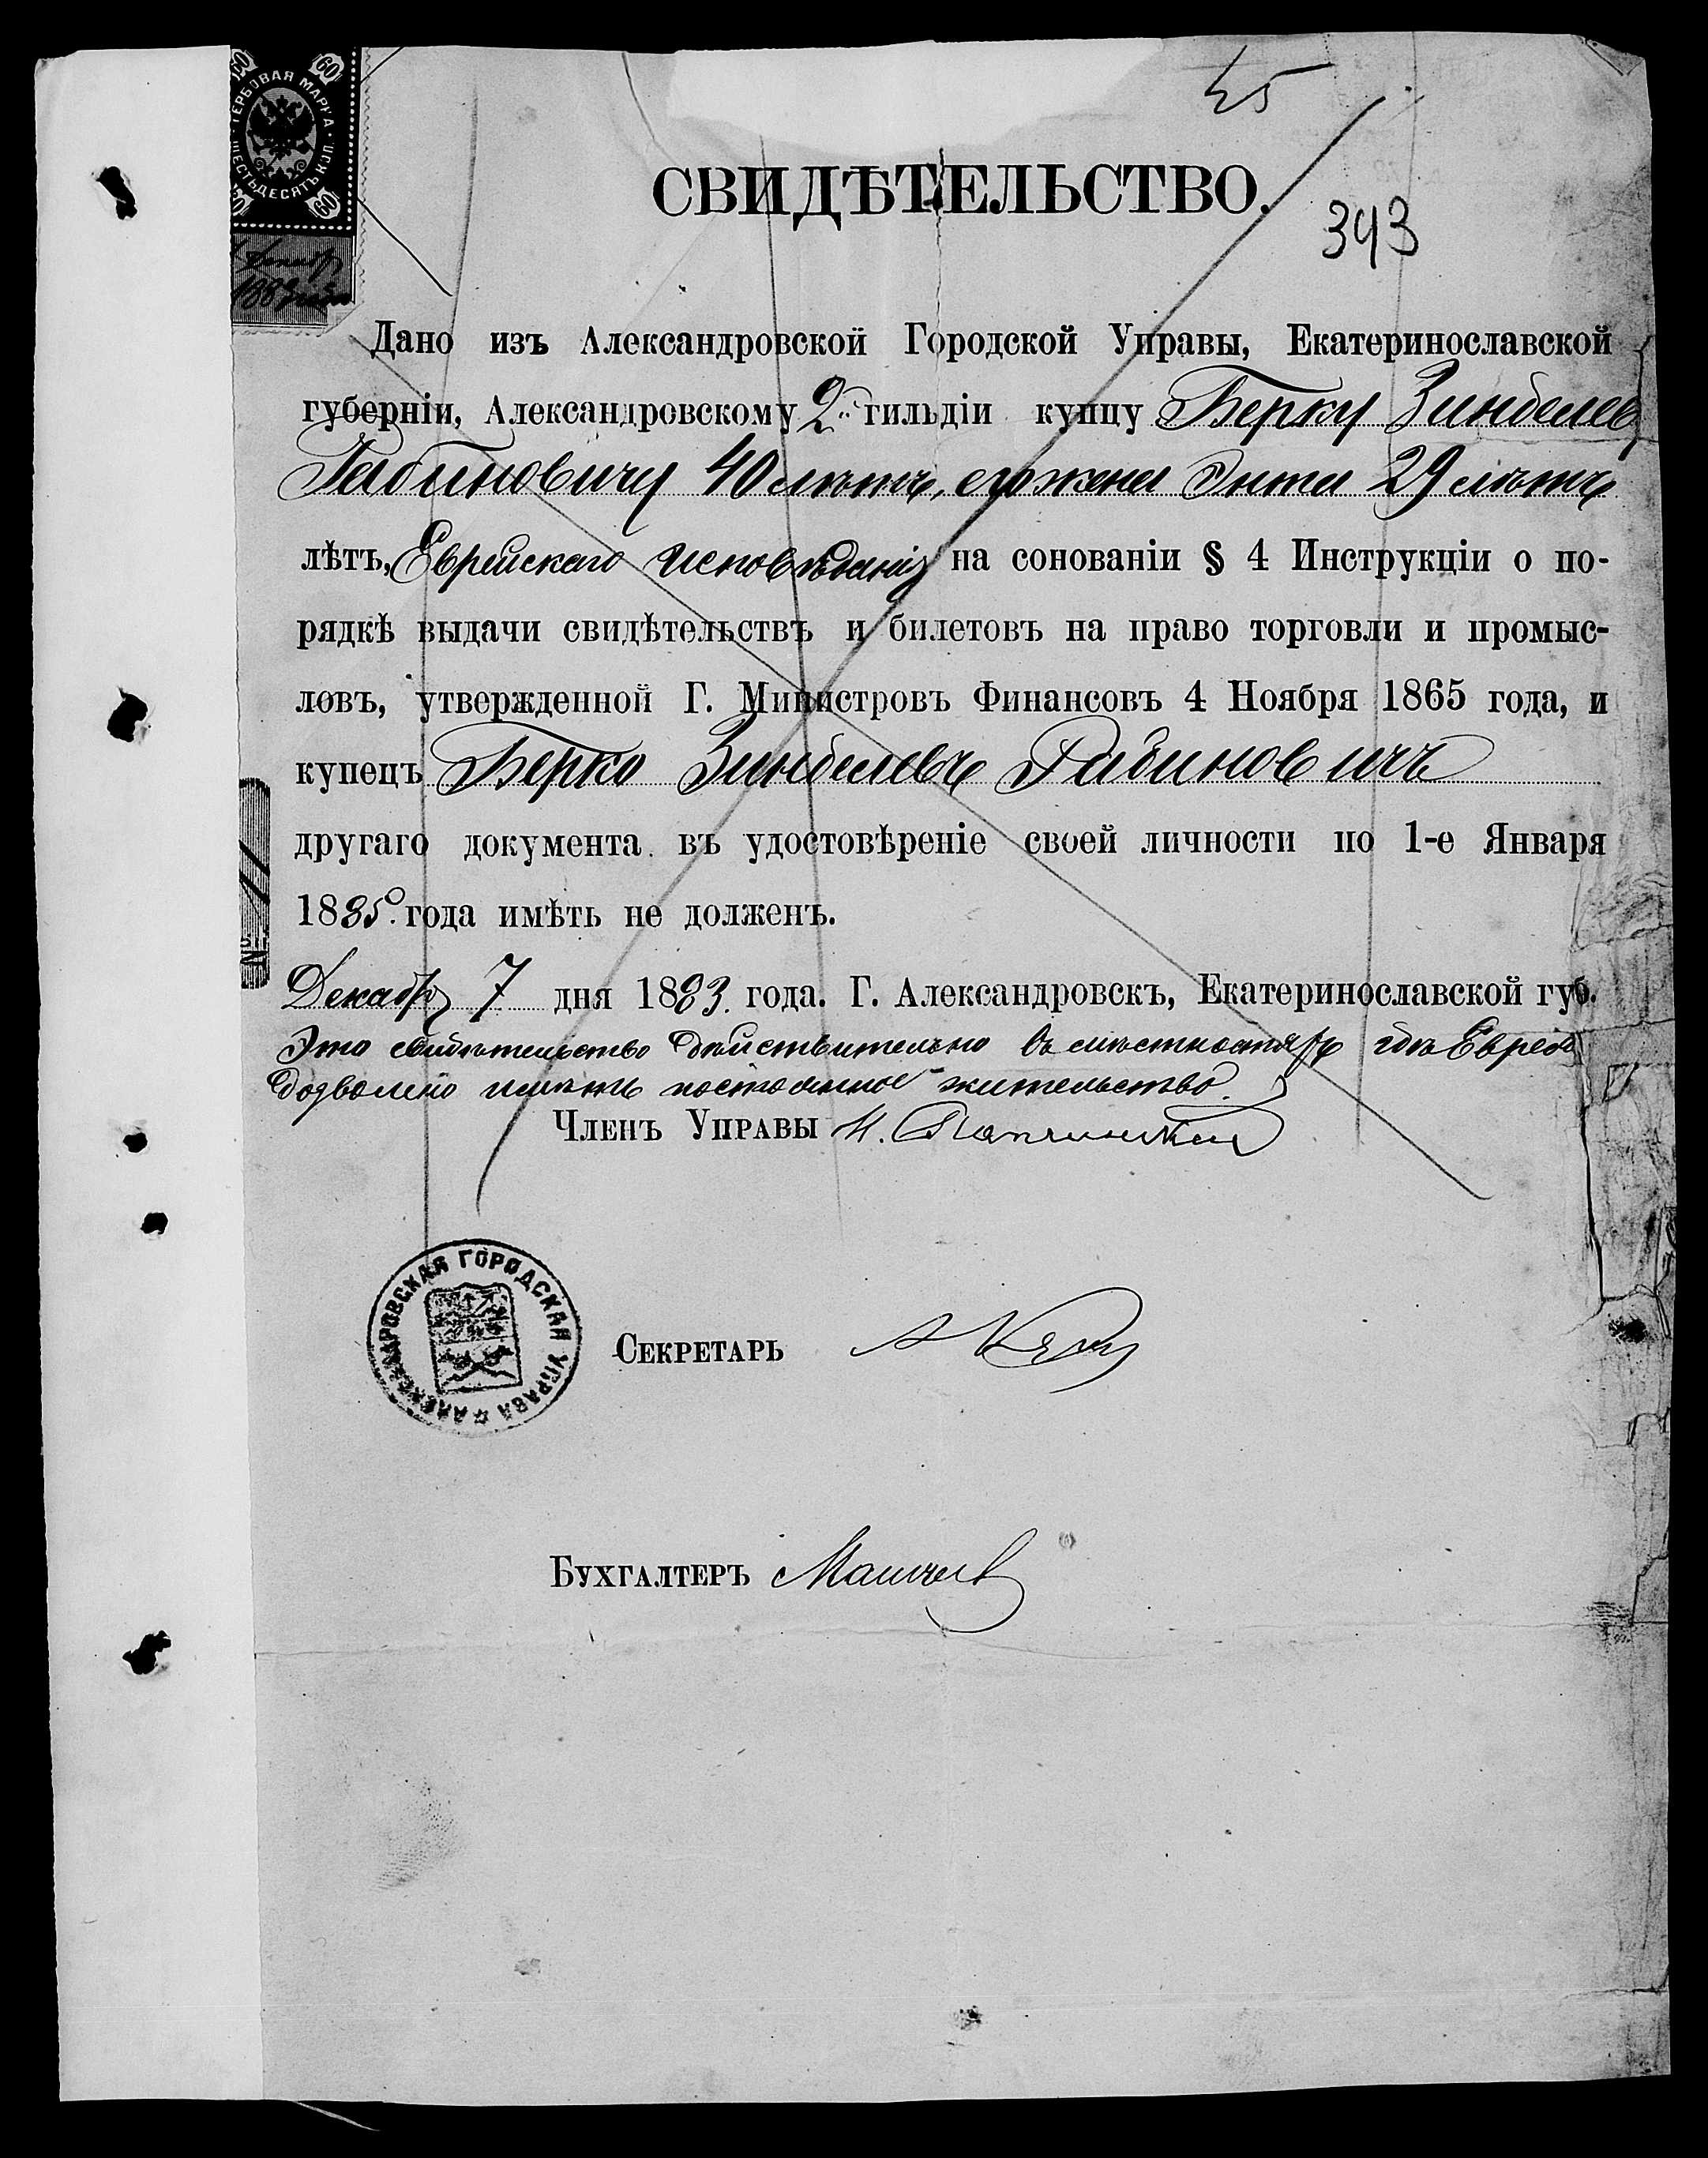 ГЕРБОВАЯ МАРКА
ШЕСТЬДЕСЯТЪ КОП.
60
60
60
45
СВИДѢТЕЛЬСТВО.
393
Дано изъ Александровской Городской Управы, Екатеринославской
губерніи, Александровскому 2й гильдіи купцу Берку Зинделев
Рабиновичу 40 лѣтъ, его жена Энта 29 лѣтъ
лѣтъ, Еврейскаго исповѣданія на сонованіи § 4 Инструкціи о по-
рядкѣ выдачи свидѣтельствъ и билетовъ на право торговли и промыс-
ловъ, утвержденной Г. Министровъ Финансовъ 4 Ноября 1865 года, и
купецъ Берко Зинделевъ Рабиновичъ
другаго документа въ удостовѣреніе своей личности по 1-е Января
1885 года имѣть не долженъ.
№ 11
Декабря 7 дня 1883 года. Г. Александровскъ, Екатеринославской губ.
Это свидѣтельство дѣйствительно въ мѣстностяхъ гдѣ Евреямъ
дозволено имѣть постоянное жительство.
Членъ Управы Н.
АЛЕКСАНДРОВСКАЯ ГОРОДСКАЯ УПРАВА
Секретарь
Бухгалтеръ